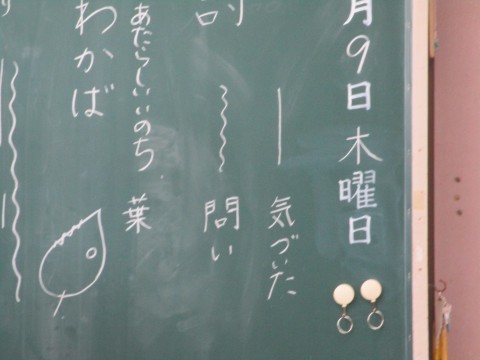 月9日木曜日
気づいた
問い
あたらしいいのち、葉
わかば